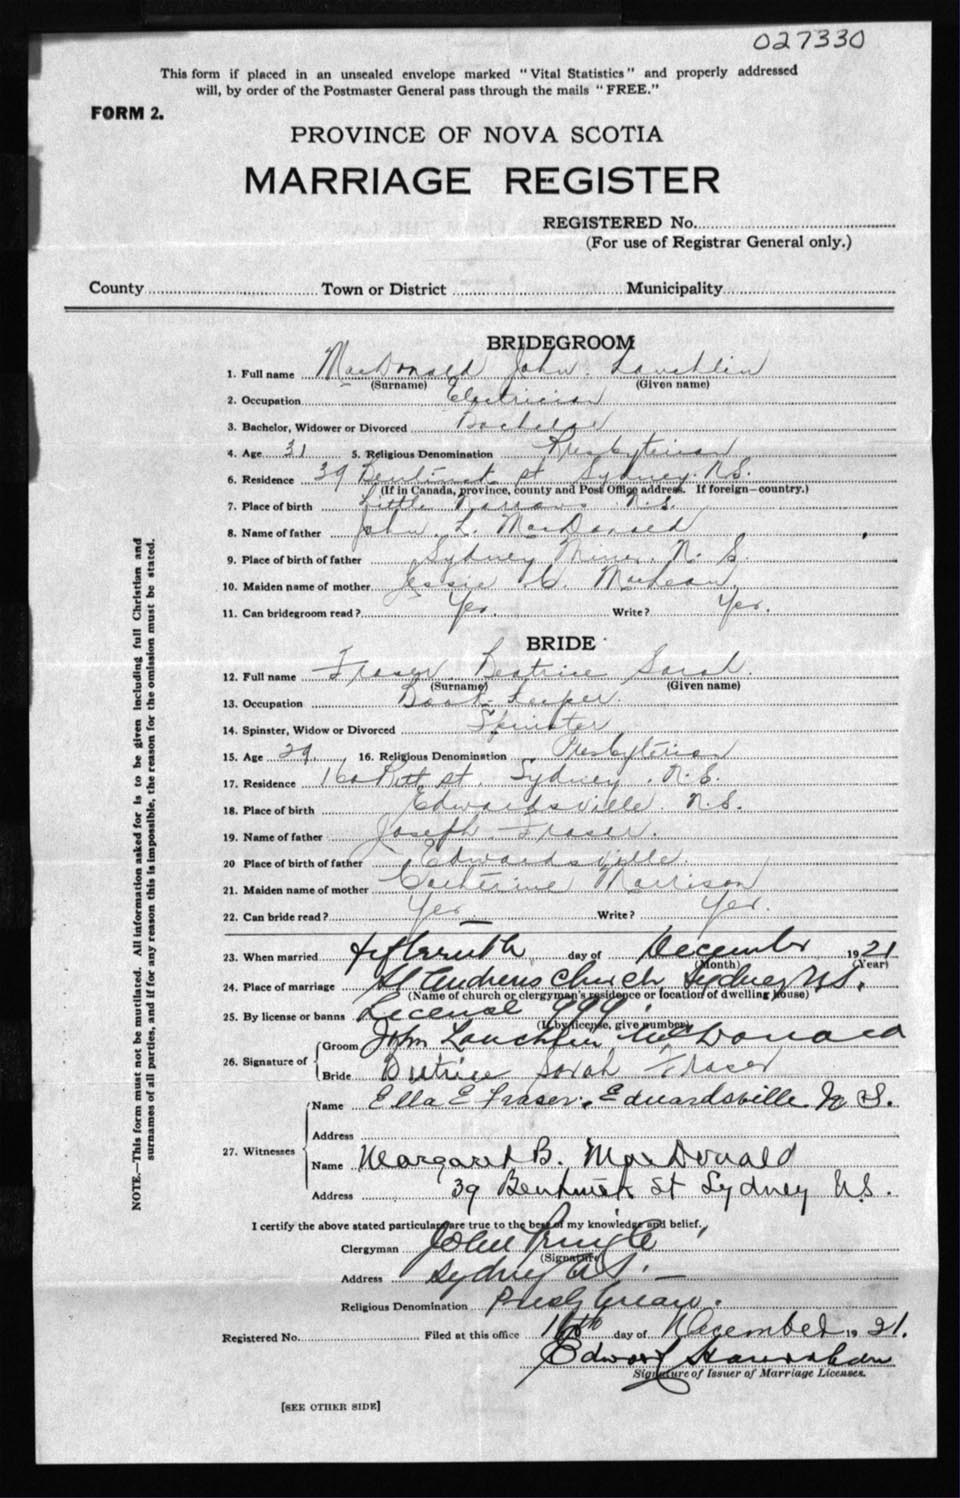 027330
This form if placed in an unsealed envelope marked "Vital Statistics" and properly addressed
will, by order of the Postmaster General pass through the mails "FREE."
FORM 2.
PROVINCE OF NOVA SCOTIA
MARRIAGE REGISTER
REGISTERED No.
(For use of Registrar General only.)
County Town or District Municipality
BRIDEGROOM
1. Full name MacDonald John Lauchlin
(Surname) (Given name)
2. Occupation Electrician
3. Bachelor, Widower or Divorced Bachelor
4. Age 31 5. Religious Denomination Presbyterian
6. Residence 39 Bentinck St Sydney N.S.
(If in Canada, province, county and Post Office address. If foreign—country.)
7. Place of birth Little Narrows N.S.
8. Name of father John L. MacDonald
9. Place of birth of father Sydney Mines N.S.
10. Maiden name of mother Jessie C. MacLean
11. Can bridegroom read? Yes. Write? Yes.
BRIDE
12. Full name Fraser Beatrice Sarah
(Surname) (Given name)
13. Occupation Book Keeper.
14. Spinster, Widow or Divorced Spinster
15. Age 29. 16. Religious Denomination Presbyterian
17. Residence 160 Pitt St. Sydney. N.S.
18. Place of birth Edwardsville. N.S.
19. Name of father Joseph Fraser.
20 Place of birth of father Edwardsville.
21. Maiden name of mother Catherine Morrison
22. Can bride read? Yes Write? Yes.
23. When married fifteenth day of December 1921
(Month) (Year)
24. Place of marriage St Andrews Church, Sydney N.S.
(Name of church or clergyman's residence or location of dwelling house)
25. By license or banns License 999
(If by license, give number)
26. Signature of Groom John Lauchlin McDonald
Bride Beatrice Sarah Fraser
27. Witnesses
Name Ella E Fraser, Edwardsville N S.
Address
Name Margaret B. MacDonald
Address 39 Bentinck St Sydney N.S.
I certify the above stated particulars are true to the best of my knowledge and belief.
Clergyman John Pringle
(Signature)
Address Sydney N.S.
Religious Denomination Presbyterian.
Registered No. Filed at this office 16th day of December 1921.
Edward
Signature of Issuer of Marriage Licenses.
[SEE OTHER SIDE]
NOTE.—This form must not be mutilated. All information asked for is to be given including full Christian and
surnames of all parties, and if for any reason this is impossible, the reason for the omission must be stated.